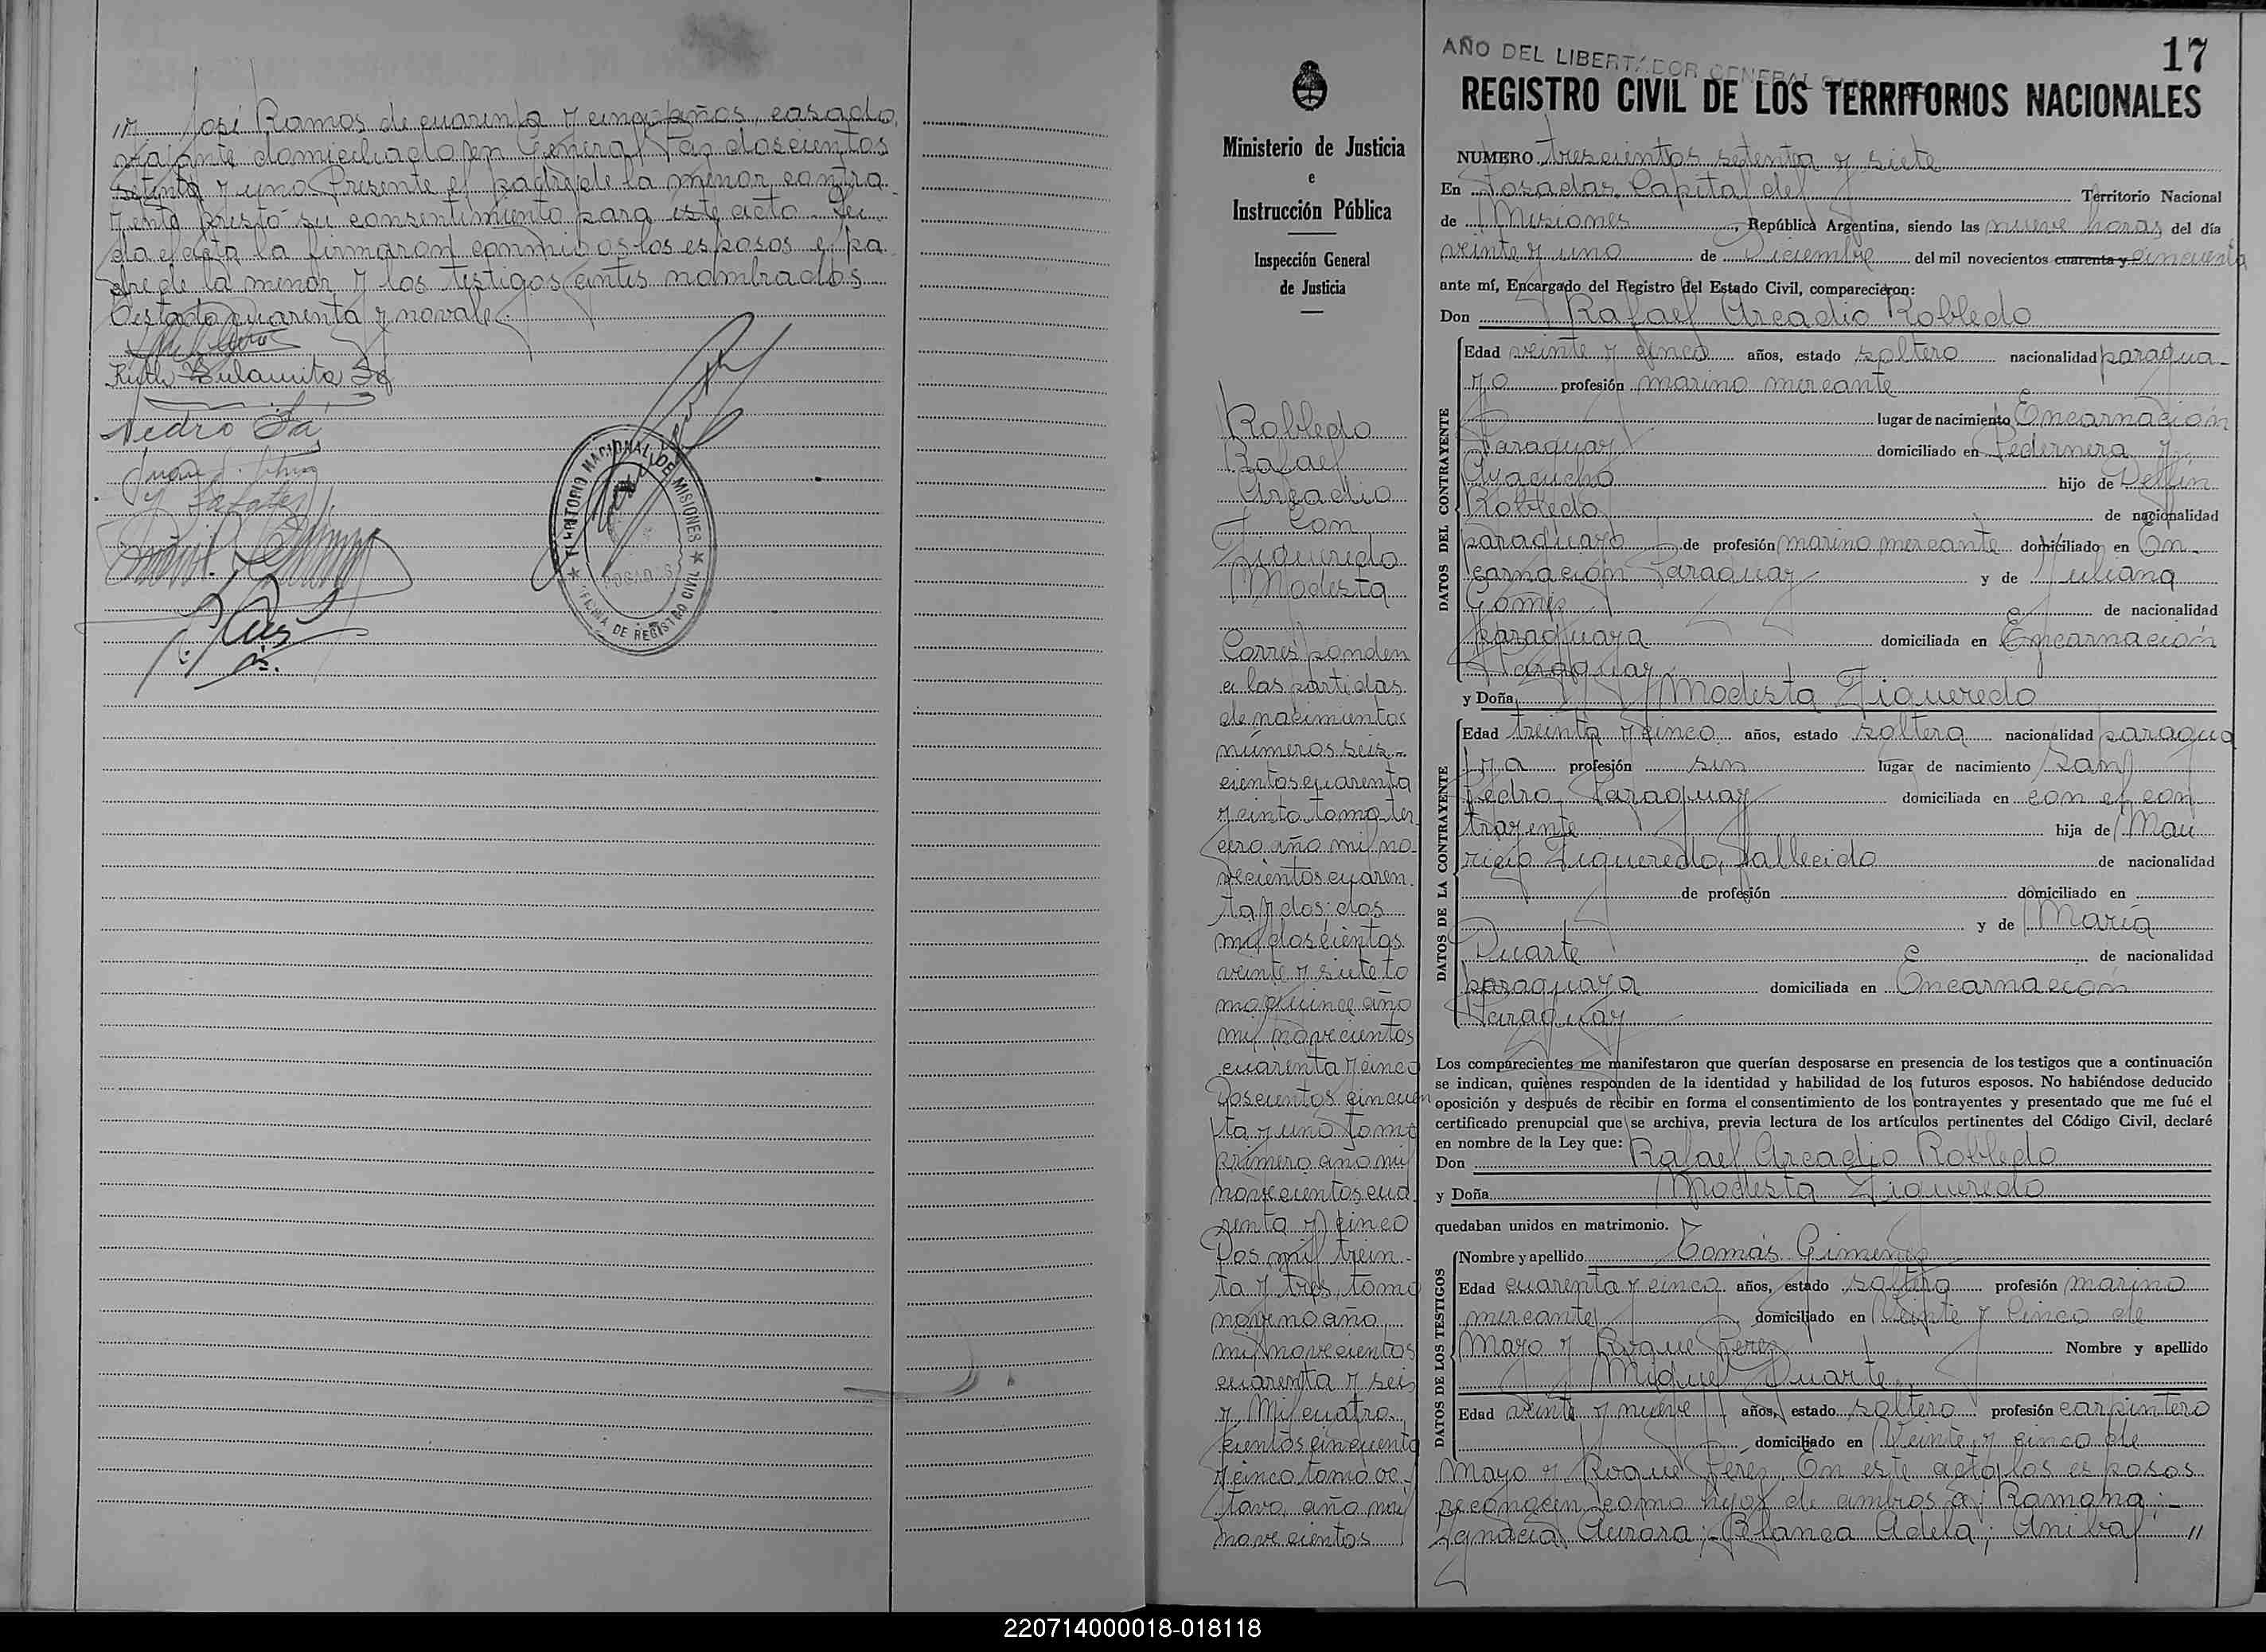 José Ramos de cuarenta y cinco años, casado,
viajante domiciliado en General Paz doscientos
setenta y uno. Presente el padre de la menor contra-
yente prestó su consentimiento para este acto. Lei-
da el acta la firmaron conmigo los esposos el pa-
dre de la menor y los testigos antes nombrados.
Testado cuarenta y no vale.
Ruth Sulamita Sá
Pedro Sá
TERRITORIO NACIONAL DE MISIONES
POSADAS
OFICINA DE REGISTRO CIVIL
Ministerio de Justicia
e
Instrucción Pública
Inspección General
de Justicia
Robledo
Rafael
Arcadio
Con
Figueredo
Modesta
Corresponden
a las partidas
de nacimientos
números seis-
cientos cuarenta
y cinto tomo ter-
cero año mil no-
vecientos cuaren-
ta y dos: dos
mil doscientos
veinte y siete to
mo quince año
mil novecientos
cuarenta y cinco
Doscientos cincuen
ta y uno tomo
primero año mil
novecientos cua-
renta y cinco
Dos mil trein-
ta y tres, tomo
noveno año
mil novecientos
cuarenta y seis
y Mil cuatro
cientos cincuenta
y cinco tomo oc-
tavo, año mil
novecientos
17
AÑO DEL LIBERTADOR GENERAL SAN
REGISTRO CIVIL DE LOS TERRITORIOS NACIONALES
NUMERO trescientos setenta y siete
En Posadas, Capital del Territorio Nacional
de Misiones, República Argentina, siendo las nueve horas del día
veinte y uno de Diciembre del mil novecientos cuarenta y cincuenta
ante mí, Encargado del Registro del Estado Civil, comparecieron:
Don Rafael Arcadio Robledo
DATOS DEL CONTRAYENTE
Edad veinte y cinco años, estado soltero nacionalidad paragua-
yo profesión marino mercante
lugar de nacimiento Encarnación
Paraguay domiciliado en Pedernera y
Ayacucho hijo de Delfín
Robledo de nacionalidad
paraguayo de profesión marino mercante domiciliado en En-
carnación Paraguay y de Juliana
Gomez de nacionalidad
paraguaya domiciliada en Encarnación
Paraguay
y Doña Modesta Figueredo
DATOS DE LA CONTRAYENTE
Edad treinta y cinco años, estado soltera nacionalidad paragua
ya profesión sin lugar de nacimiento San
Pedro Paraguay domiciliada en con el con
trayente hija de Mau
ricio Figueredo, fallecido de nacionalidad
de profesión domiciliado en
y de María
Duarte de nacionalidad
paraguaya domiciliada en Encarnación
Paraguay
Los comparecientes me manifestaron que querían desposarse en presencia de los testigos que a continuación
se indican, quiénes responden de la identidad y habilidad de los futuros esposos. No habiéndose deducido
oposición y después de recibir en forma el consentimiento de los contrayentes y presentado que me fué el
certificado prenupcial que se archiva, previa lectura de los artículos pertinentes del Código Civil, declaré
en nombre de la Ley que:
Don Rafael Arcadio Robledo
y Doña Modesta Figueredo
quedaban unidos en matrimonio.
DATOS DE LOS TESTIGOS
Nombre y apellido Tomás Gimenez
Edad cuarenta y cinco años, estado soltero profesión marino
mercante domiciliado en Veinte y Cinco de
Mayo y Roque Perez Nombre y apellido
Miguel Duarte
Edad veinte y nueve años, estado soltero profesión carpintero
domiciliado en Veinte y cinco de
Mayo y Roque Perez. En este acto los esposos
reconocen como hijos de ambos a: Ramona;
Ignacia Aurora; Blanca Adela; Anibal "
220714000018-018118